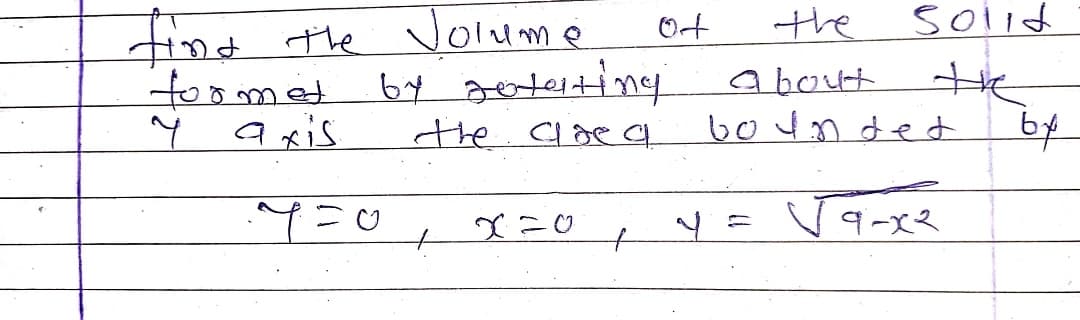 find the Volume of the solid
formed by rotating about the
Y axis the area bounded by
y = 0 , x = 0 , y = √9-x²